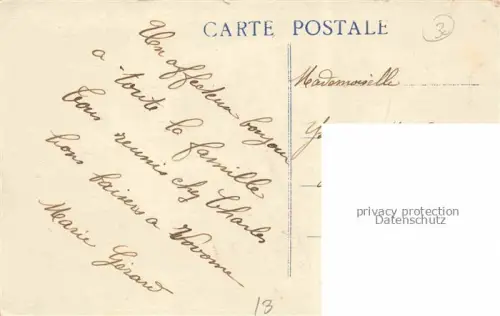 CARTE POSTALE
3
Un affectueux bonjour
a toute la famille
Tous reunis chez Charles
bons baisers a
Marie Gérard
Mademoiselle
privacy protection
Datenschutz
13